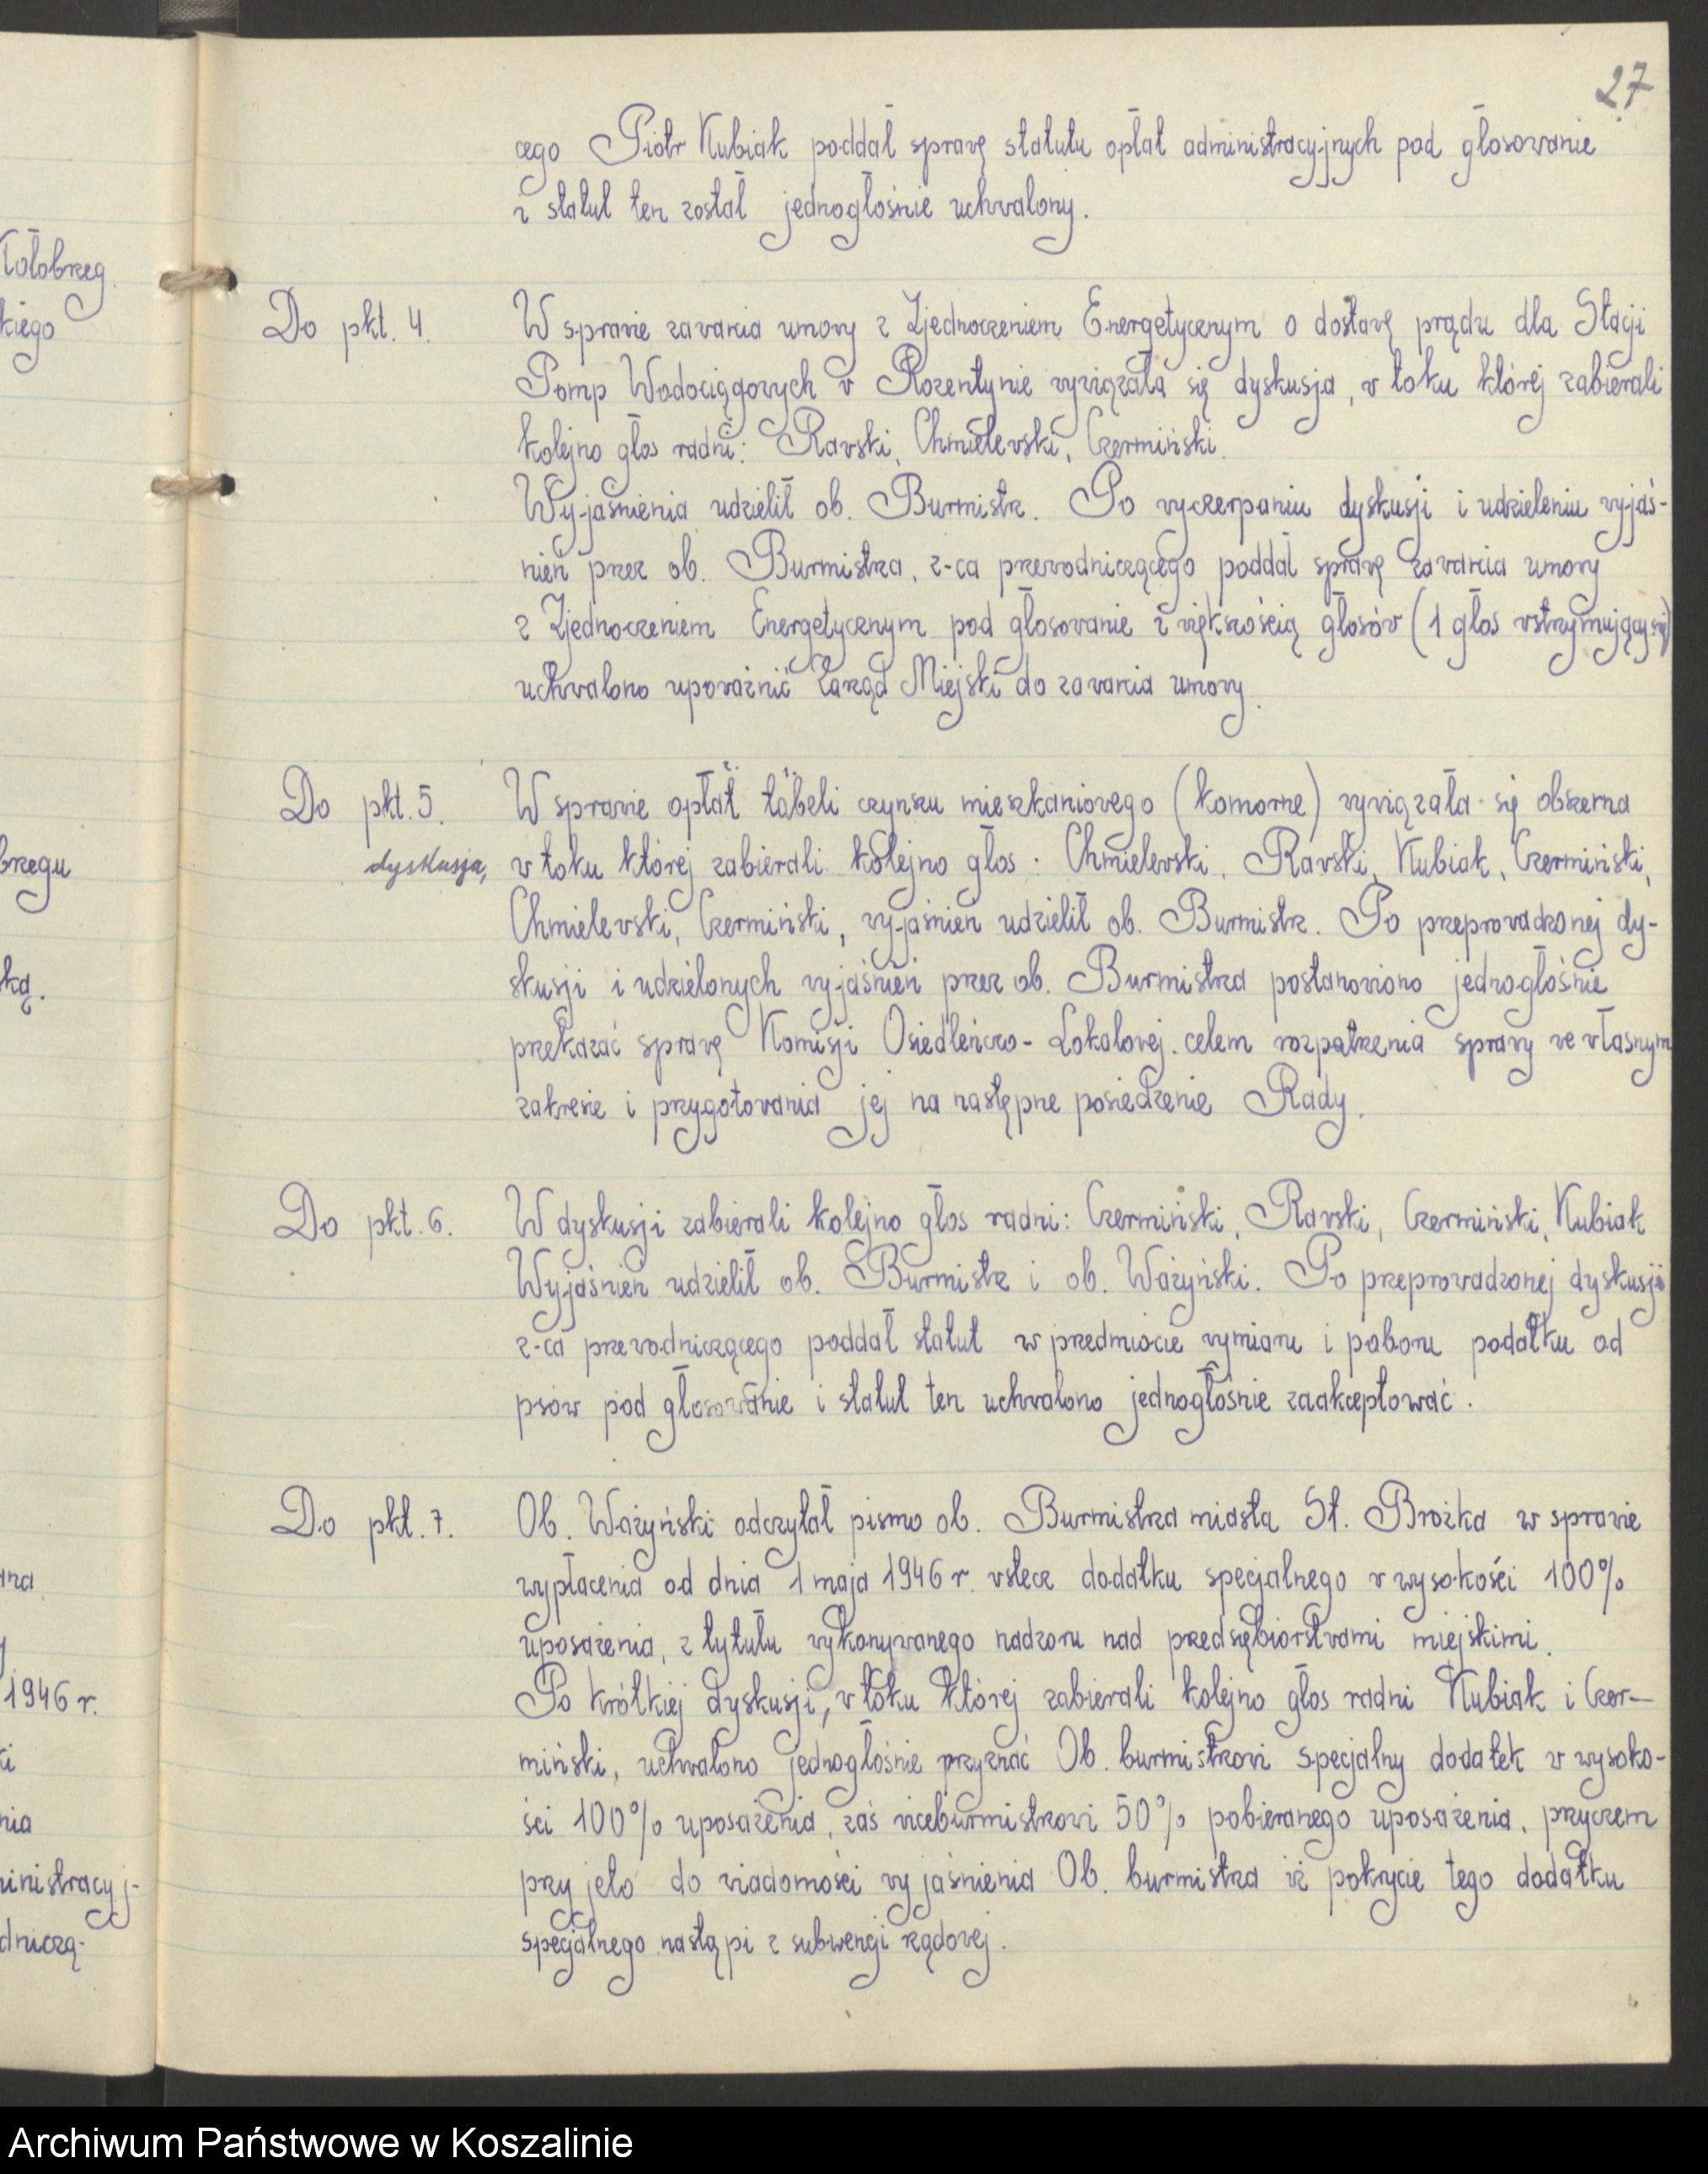 27
cego Piotr Kubiak poddał sprawę statutu opłat administracyjnych pod głosowanie
i statut ten został jednogłośnie uchwalony.
Kołobrzeg.
kiego
Do pkt. 4. W sprawie zawarcia umowy z Zjednoczeniem Energetycznym o dostawę prądu dla Stacji
Pomp Wodociągowych w Rozentynie wywiązała się dyskusja, w toku której zabierali
kolejno głos radni: Rawski, Chmielewski, Czermiński.
Wyjaśnienia udzielił ob. Burmistrz. Po wyczerpaniu dyskusji i udzieleniu wyjaś-
nień przez ob. Burmistrza, z-ca przewodniczącego poddał sprawę zawarcia umowy
z Zjednoczeniem Energetycznym pod głosowanie i większością głosów (1 głos wstrzymujący się)
uchwalono upoważnić Zarząd Miejski do zawarcia umowy.
Do pkt. 5. W sprawie opłat tabeli czynszu mieszkaniowego (komorne) wywiązała się obszerna
brzegu
dyskusja, w toku której zabierali kolejno głos: Chmielewski, Rawski, Kubiak, Czermiński,
Chmielewski, Czermiński, wyjaśnień udzielił ob. Burmistrz. Po przeprowadzonej dy-
ką.
skusji i udzielonych wyjaśnień przez ob. Burmistrza postanowiono jednogłośnie
przekazać sprawę Komisji Osiedleńczo-Lokalowej celem rozpatrzenia sprawy we własnym
zakresie i przygotowania jej na następne posiedzenie Rady.
Do pkt. 6. W dyskusji zabierali kolejno głos radni: Czermiński, Rawski, Czermiński, Kubiak
Wyjaśnień udzielił ob. Burmistrz i ob. Ważyński. Po przeprowadzonej dyskusji
z-ca przewodniczącego poddał statut w przedmiocie wymiaru i poboru podatku od
psów pod głosowanie i statut ten uchwalono jednogłośnie zaakceptować.
Do pkt. 7. Ob. Ważyński odczytał pismo ob. Burmistrza miasta St. Brożka w sprawie
wypłacenia od dnia 1 maja 1946 r. wstecz dodatku specjalnego w wysokości 100%
uposażenia, z tytułu wykonywanego nadzoru nad przedsiębiorstwami miejskimi.
1946 r.
Po krótkiej dyskusji, w toku której zabierali kolejno głos radni Kubiak i Czer-
ki
miński, uchwalono jednogłośnie przyznać Ob. burmistrzowi specjalny dodatek w wysoko-
nia
ści 100% uposażenia, zaś viceburmistrzowi 50% pobieranego uposażenia, przyczem
ministracyj-
przyjęto do wiadomości wyjaśnienia Ob. burmistrza iż pokrycie tego dodatku
dniczą-
specjalnego nastąpi z subwencji rządowej.
Archiwum Państwowe w Koszalinie